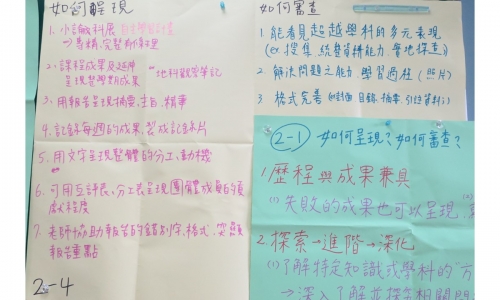 如何呈現
1. 小論科展
⇒專精、完整
2. 課程成果及延伸
呈現整學期成果
地科觀察筆記
3. 用報告呈現摘要、主旨、精華
4. 記錄每週的成果,製成記錄片
5. 用文字呈現整體的分工、動機
6. 可用互評表、分工表呈現團體成員的貢
獻程度
7. 老師協助報告的錯別字、格式、突顯
報告重點
2-4
如何審查
1. 能看見超越學科的多元表現
(ex 搜集、統整資料能力、實地探查)
2. 解決問題之能力 學習過程(照片)
3. 格式完善(如封面、目錄、摘要、引註資料)
2-1 如何呈現?如何審查?
1. 歷程與成果兼具
(1)失敗的成果也可以呈現
2. 探索→進階→深化
(1)了解特定知識或學科的"方
→深入了解並探索相關問